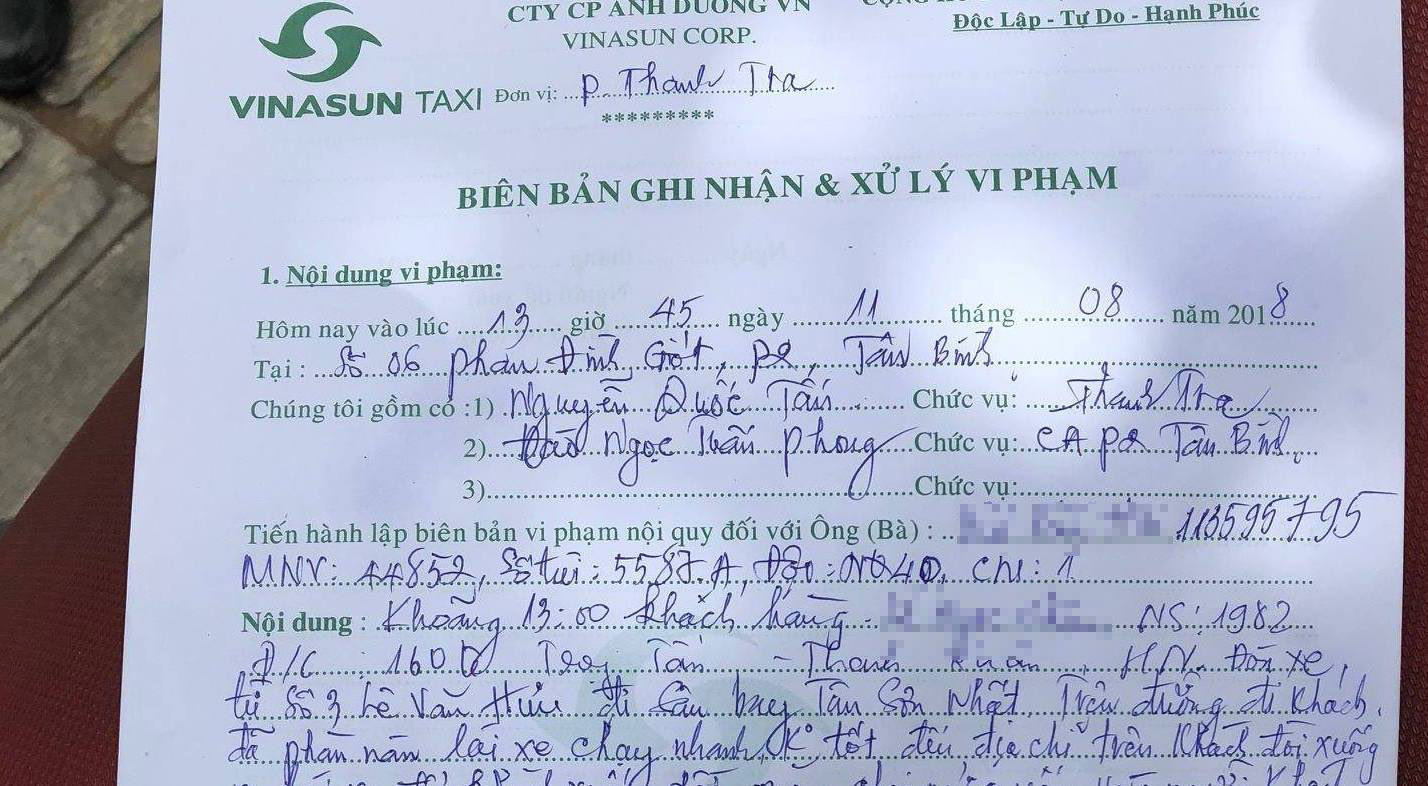 CTY CP ÁNH DƯƠNG VN
VINASUN CORP.
Độc Lập - Tự Do - Hạnh Phúc
VINASUN TAXI
Đơn vị: P. Thanh Tra
*********
BIÊN BẢN GHI NHẬN & XỬ LÝ VI PHẠM
1. Nội dung vi phạm:
Hôm nay vào lúc 13 giờ 45 ngày 11 tháng 08 năm 2018
Tại : Số 06 Phan Đình Giót, P2, Tân Bình
Chúng tôi gồm có :1) Nguyễn Quốc Tấn Chức vụ: Thanh Tra
2) Đào Ngọc Tuấn Phong Chức vụ: CA P2 Tân Bình
3) Chức vụ:
Tiến hành lập biên bản vi phạm nội quy đối với Ông (Bà) : 113595795
MNV: 44852, Số tài: 5587.A, Đội: N040, CN: 1
Nội dung : Khoảng 13:00 khách hàng NS: 1982
Đ/C: 160 Tân - Thanh Xuân, HN. Đón xe
từ Số 3 Lê Văn Hưu đi Sân bay Tân Sơn Nhất. Trên đường đi khách
đã phàn nàn lái xe chạy nhanh, K° tốt đến địa chỉ trên khách đòi xuống